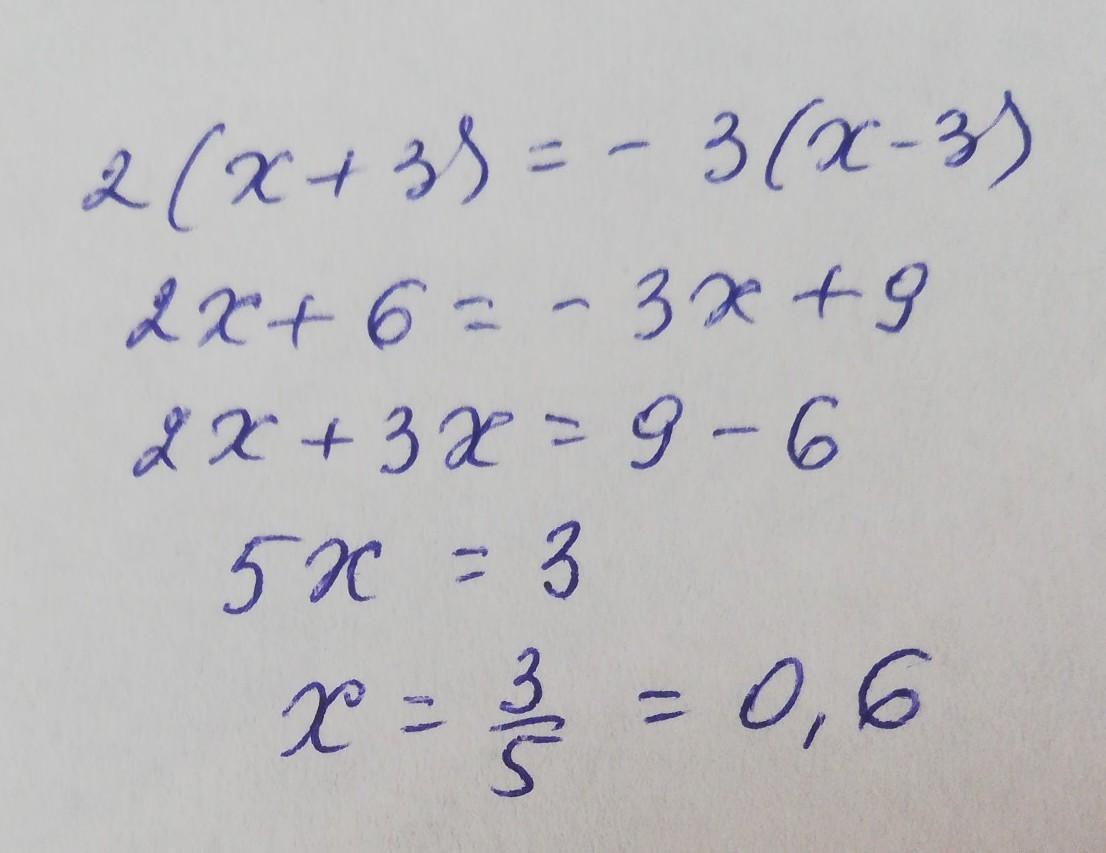 2(x+3) = - 3(x-3)
2x+6 = - 3x+9
2x+3x = 9-6
5x = 3
x = 3/5 = 0,6